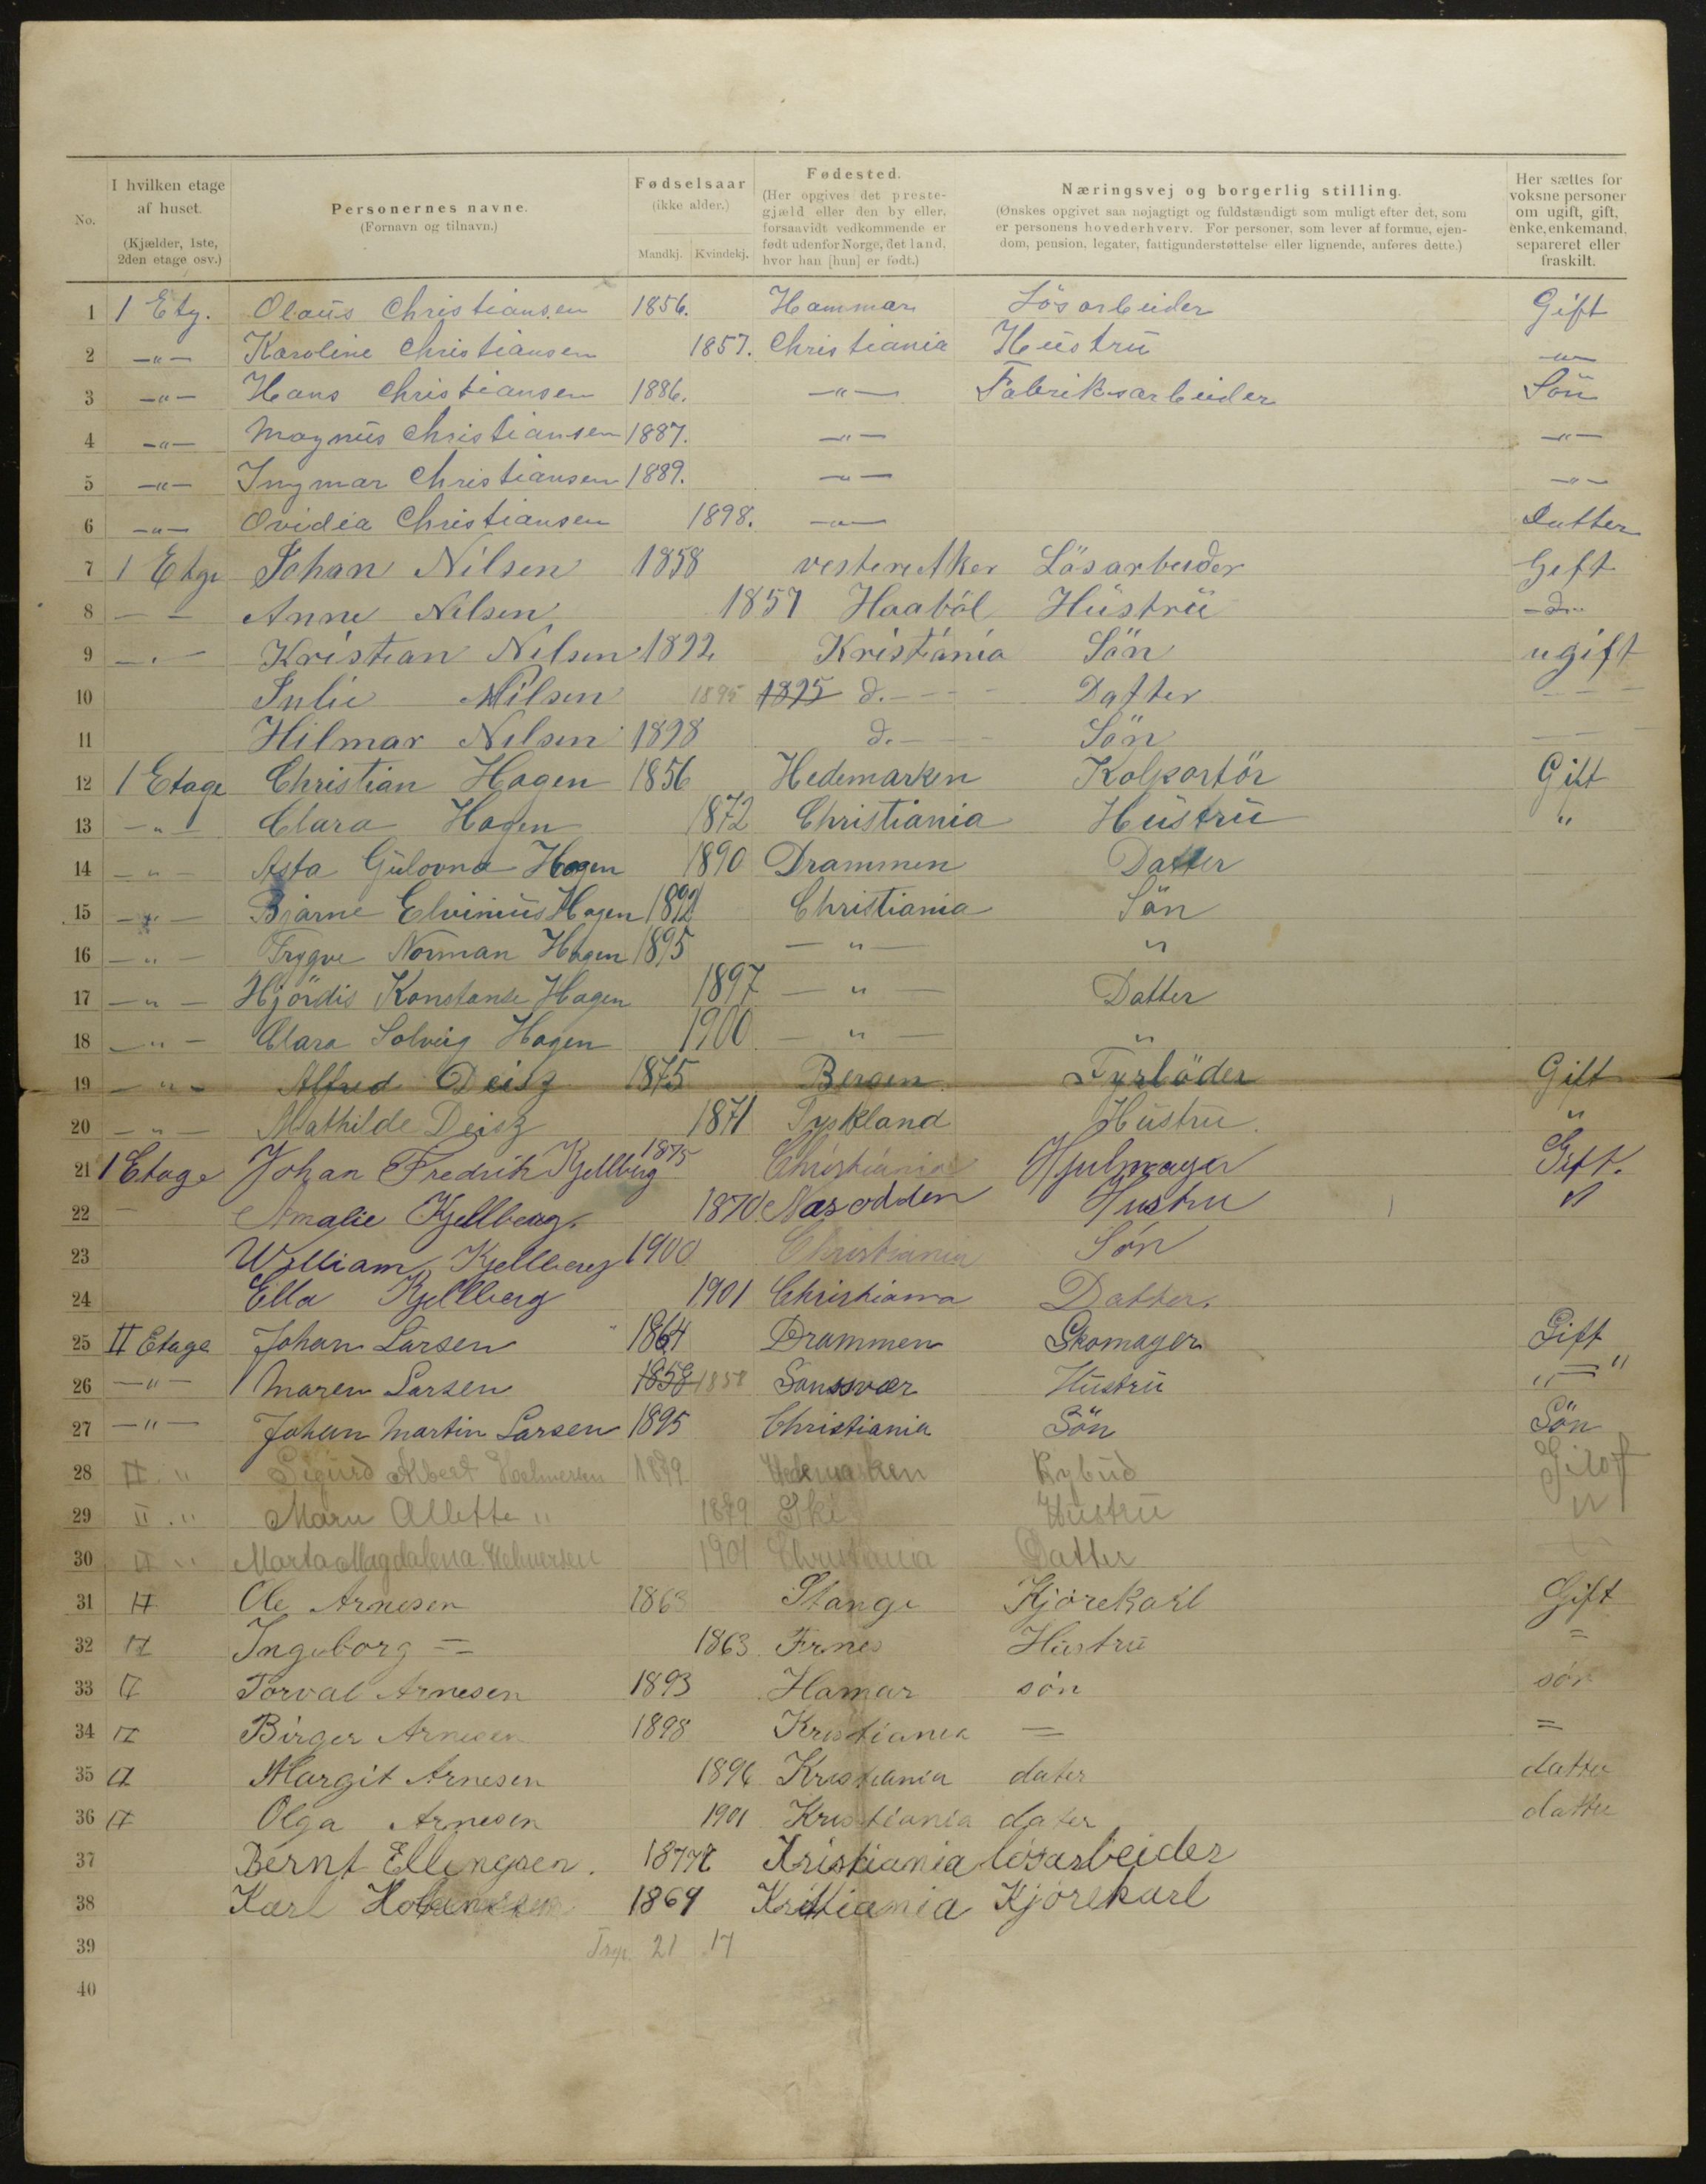 No. I hvilken etage af huset. (Kjælder, 1ste, 2den etage osv.) Personernes navne. (Fornavn og tilnavn.) Fødselsaar (ikke alder.) Mandkj. Kvindekj. Fødested. (Her opgives det prestegjæld eller den by eller, forsaavidt vedkommende er født udenfor Norge, det land, hvor han [hun] er født.) Næringsvej og borgerlig stilling. (Ønskes opgivet saa nøjagtigt og fuldstændigt som muligt efter det, som er personens hovederhverv. For personer, som lever af formue, ejendom, pension, legater, fattigunderstøttelse eller lignende, anføres dette.) Her sættes for voksne personer om ugift, gift, enke, enkemand, separeret eller fraskilt.
1 1 Etg. Olaüs Christiansen 1856. Hammar Lösarbeider Gift
2 -"- Karoline Christiansen 1857. Christiania Hüstrü -"-
3 -"- Hans Christiansen 1886. -"- Fabriksarbeider Sön
4 -"- Magnüs Christiansen 1887. -"- -"-
5 -"- Ingmar Christiansen 1889. -"- -"-
6 -"- Ovidia Christiansen 1898. -"- Datter
7 1 Etge Johan Nilsen 1858 vestere Aker Lösarbeider Gift
8 - - Anne Nilsen 1857 Haaböl Hüstrü -d-
9 -"- Kristian Nilsen 1892 Kristiania Sön ugift
10 Julie Nilsen 1895 1895 d. - - - Datter - - -
11 Hilmar Nilsen 1898 d. - - - Sön - - -
12 1 Etage Christian Hagen 1856 Hedemarken Kolportör Gift
13 -"- Clara Hagen 1872 Christiania Hüstrü "
14 -"- Asta Gülovna Hagen 1890 Drammen Datter
15 -"- Bjarne Elvinius Hagen 1892 Christiania Sön
16 -"- Trygve Norman Hagen 1895 -"- "
17 -"- Hjördis Konstanse Hagen 1897 -"- Datter
18 -"- Clara Solveig Hagen 1900 -"- "
19 -"- Alfred Deisz 1875 Bergen Fyrböder Gift
20 -"- Mathilde Deisz 1871 Tyskland Hüstrü. "
21 1 Etage Johan Fredrik Kjellberg 1875 Christiania Hjulmager Gift.
22 - Amalie Kjellberg. 1870. Næsodden Hustru "
23 William Kjellberg 1900 Christiania Søn
24 Ella Kjellberg 1901 Christiania Datter.
25 II Etage Johan Larsen 1864 Drammen Skomager Gift
26 -"- Maren Larsen 1858 1858 Sandsvær Hüstrü "-"
27 -"- Johan Martin Larsen 1895 Christiania Sön Sön
28 II " Sigurd Albert 1879 Hedemarken Bybud Gift
29 II " Marie Allette " 1879 Ski Hustrü "
30 II " Marta Magdalena 1901 Christiania Datter
31 II Ole Arnesen 1863 Stange Kjørekarl Gift
32 II Ingeborg = 1863 Frnes Hüstrü =
33 II Torval Arnesen 1893 Hamar søn søn
34 II Birger Arnesen 1898 Kristiania = =
35 II Margit Arnesen 1896 Kristiania dater datter
36 II Olga Arnesen 1901 Kristiania dater datter
37 Bernt Ellingsen. Kristiania løsarbeider
38 Karl 1869 Kristiania Kjørekarl
39 21 17
40